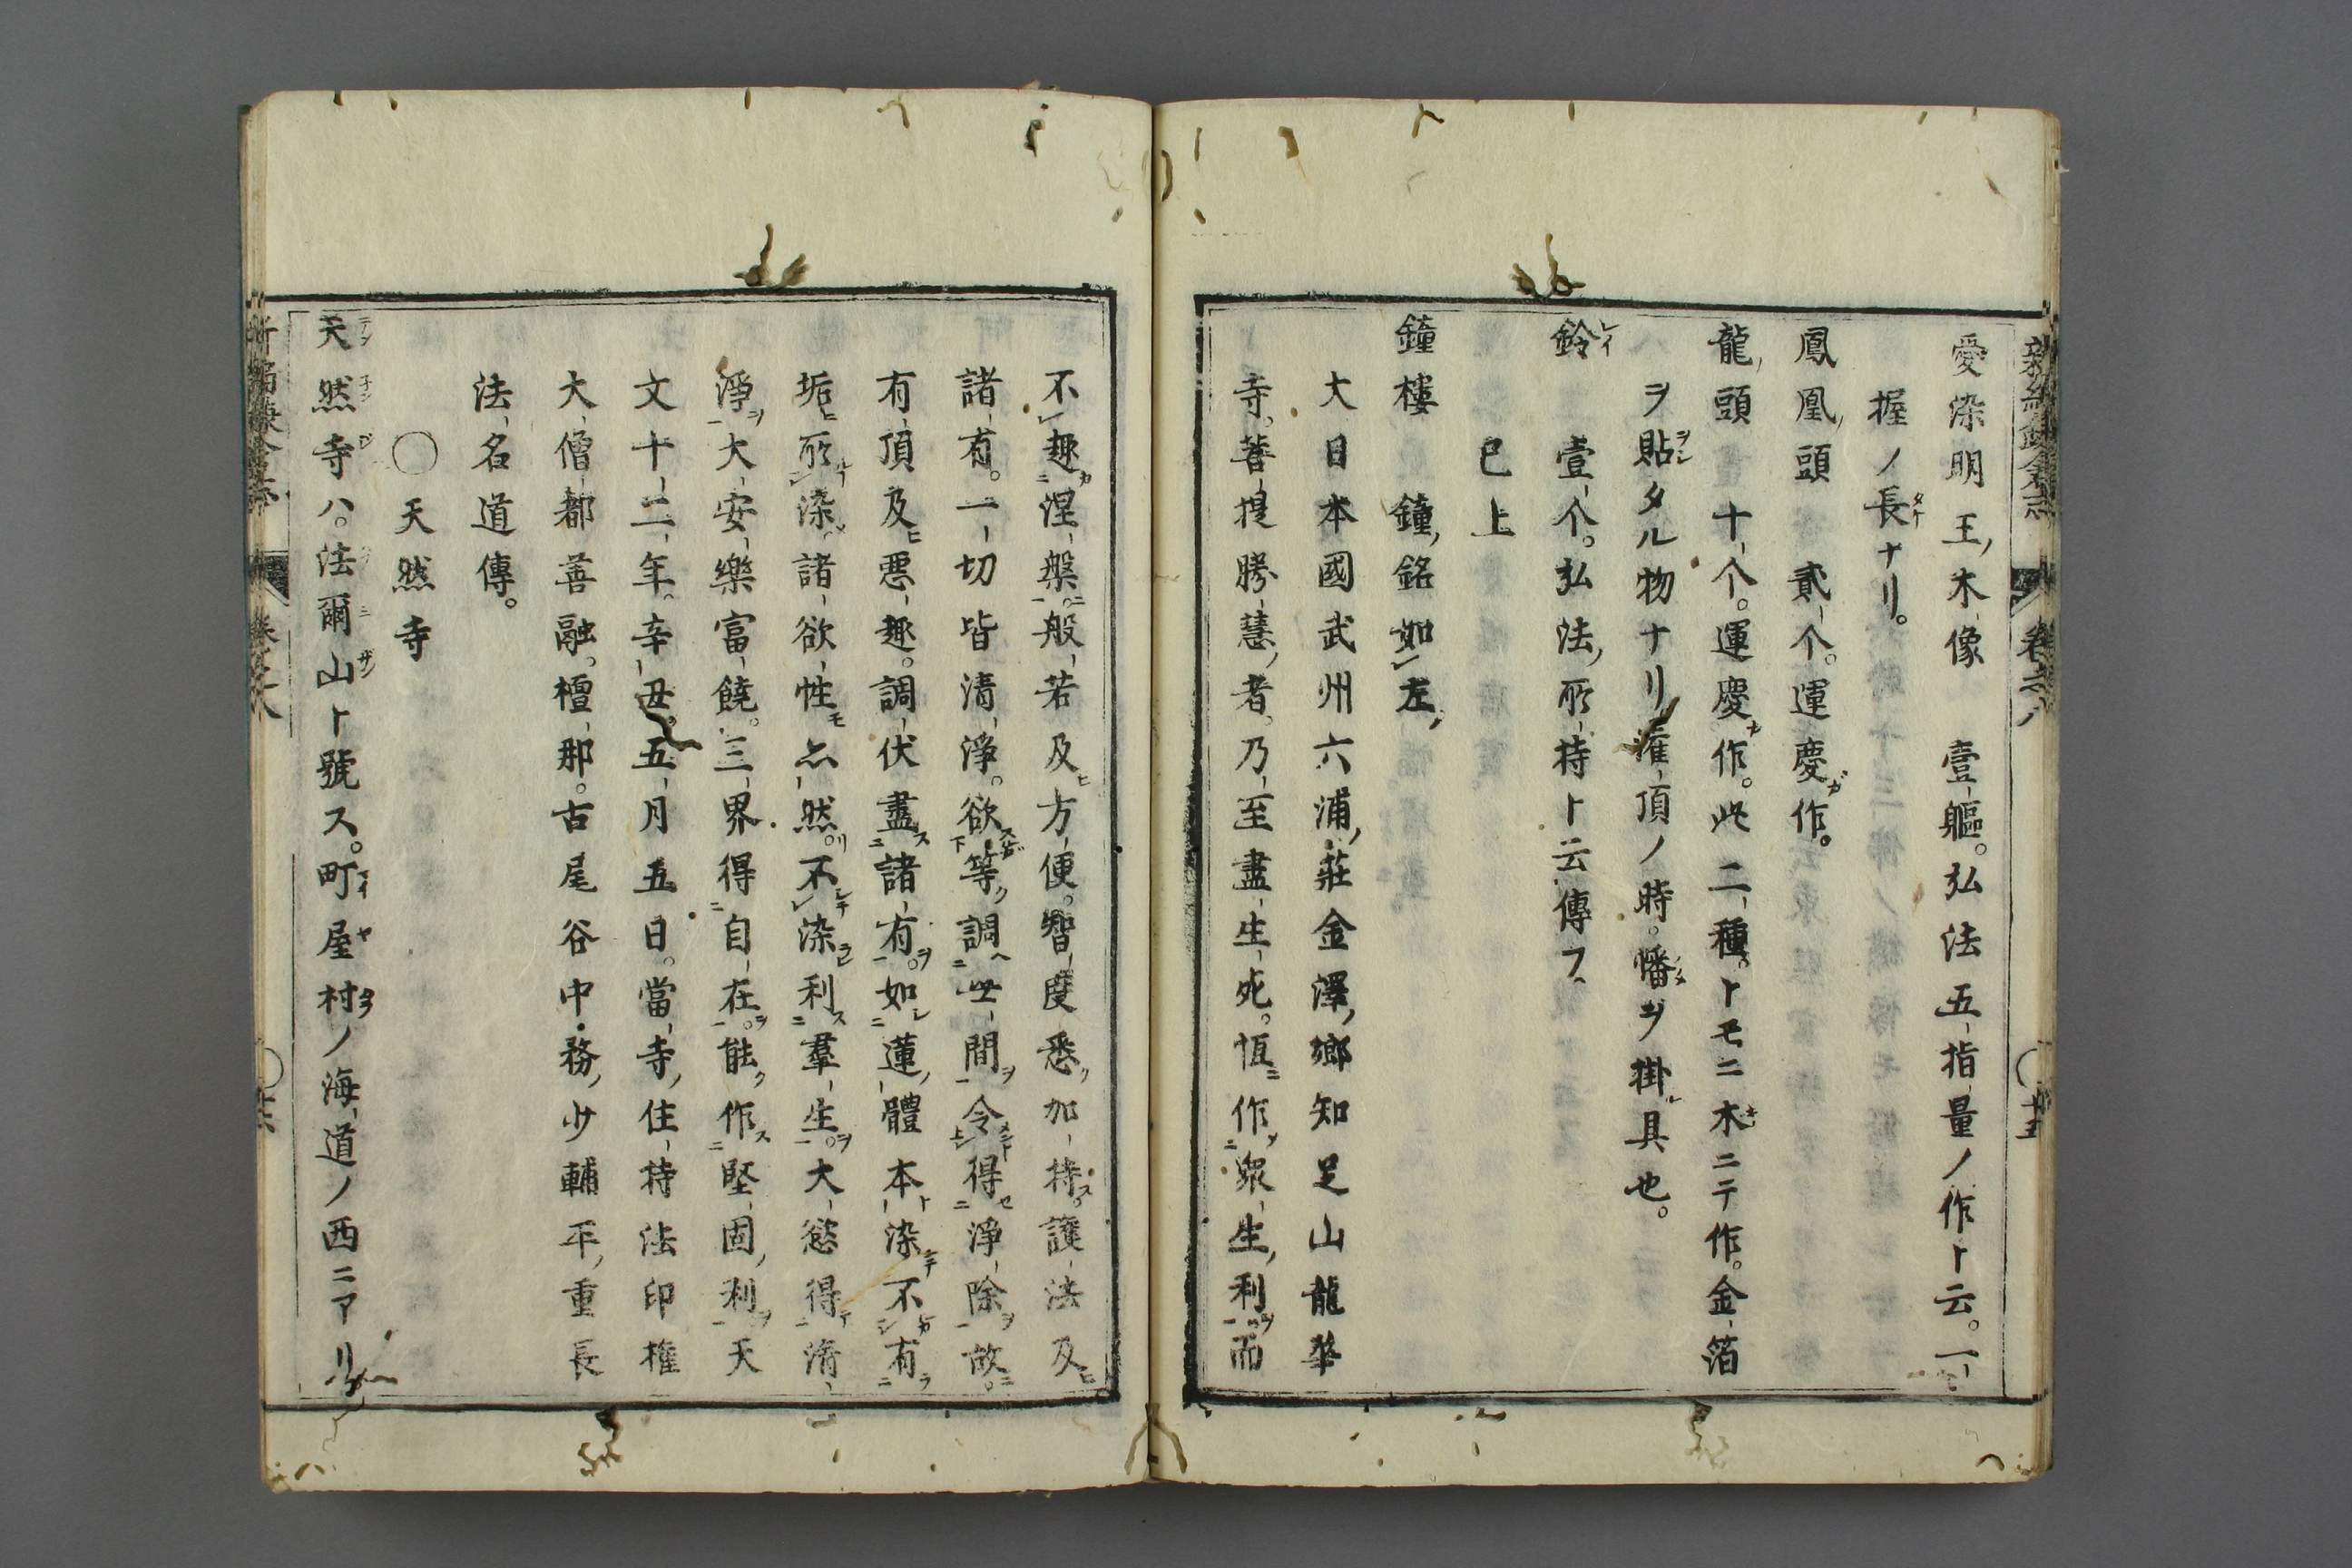 新編鎌倉志 卷之八 〇十五
愛染明王木像 壹軀。弘法五指量ノ作ト云。一
握ノ長ナリ。
鳳凰頭 貳个。運慶作。
龍頭 十个。運慶作。此二種。トモニ木ニテ作。金箔
ヲ貼タル物ナリ灌頂ノ時。幡ヲ掛具也。
鈴 壹个。弘法所持ト云傳フ
已上
鐘樓 鐘銘如左
大日本國武州六浦莊金澤鄉知足山龍華
寺。菩提勝慧者。乃至盡生死。恆作衆生利。而
不趣涅槃。般若及方便。智度悉加持。護法及
諸有。一切皆清淨。欲等調世間。令得淨除故。
有頂及惡趣。調伏盡諸有。如蓮體本染。不有
垢所染。諸欲性亦然。不染利羣生。大慾得清
淨。大安樂富饒。三界得自在。能作堅固利。天
文十二年。辛丑。五月五日。當寺住持法印權
大僧都善融。檀那。古尾谷中務少輔平重長
法名道傳。
〇天然寺
天然寺ハ。法爾山ト號ス。町屋村ノ海道ノ西ニアリ
新編鎌倉志 卷之八